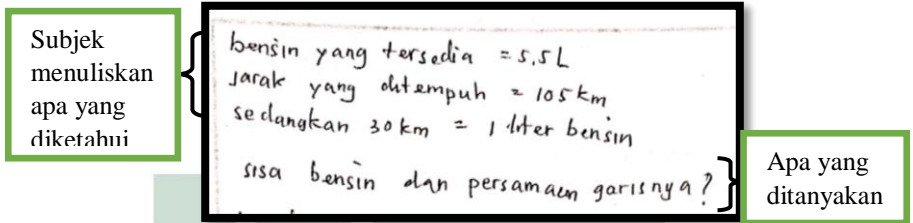 Subjek
menuliskan
apa yang
diketahui
bensin yang tersedia = 5,5 L
Jarak yang ditempuh = 105 km
sedangkan 30 km = 1 liter bensin
sisa bensin dan persamaan garisnya?
Apa yang
ditanyakan